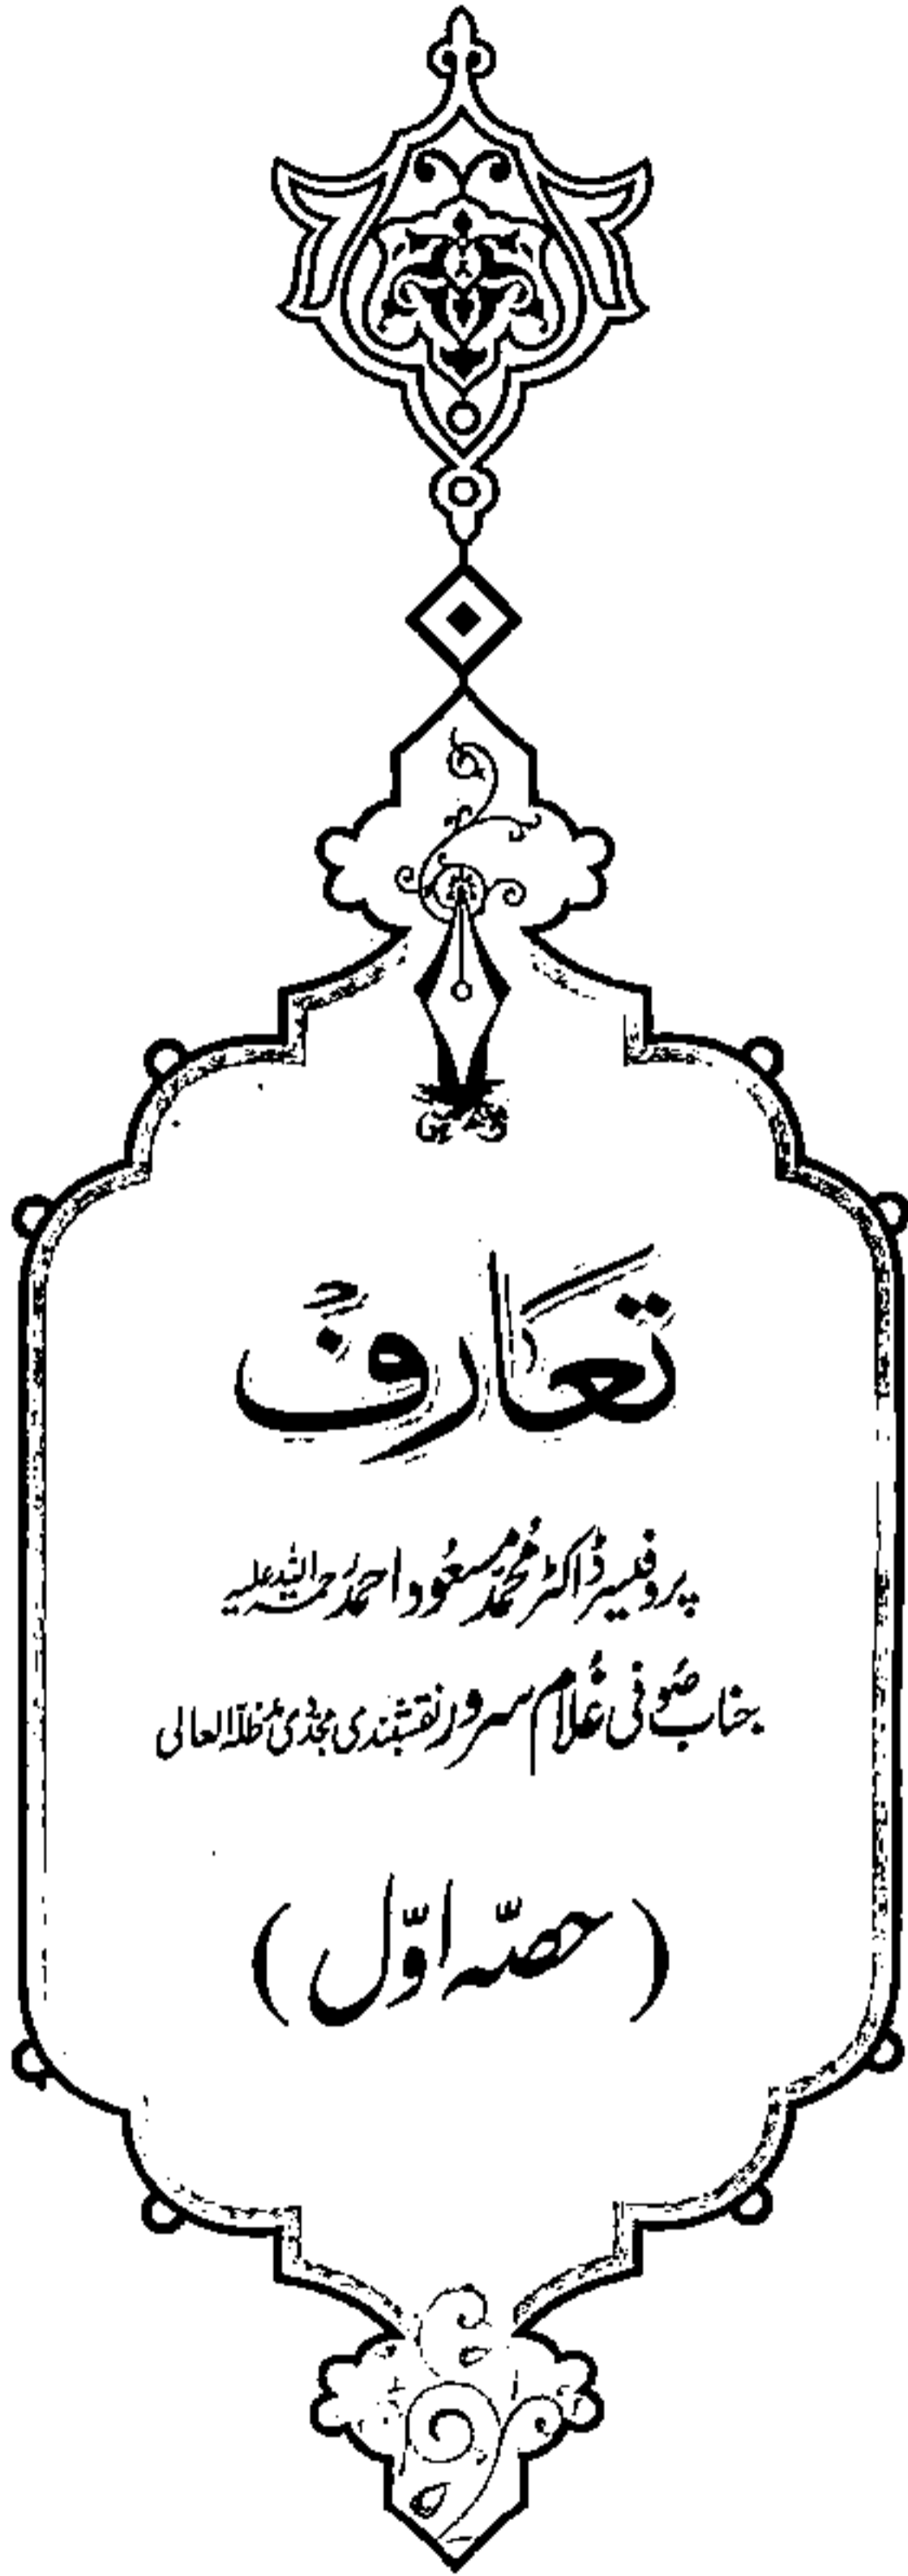 تعارف
پروفیسر ڈاکٹر محمد مسعود احمد رحمۃ اللہ علیہ
جناب صوفی غلام سرور نقشبندی مجددی مدظلہ العالی
(حصہ اوّل)